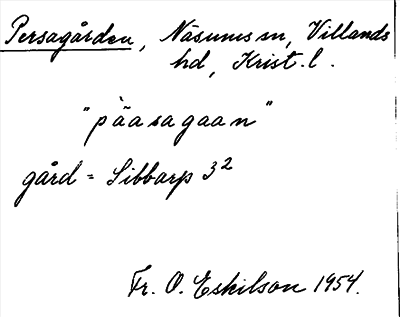 Persagården, Näsums sn, Villands
hd, Krist. l.
"päasagaan"
gård = Sibbarp 3²
Fr. O. Eskilson 1954.